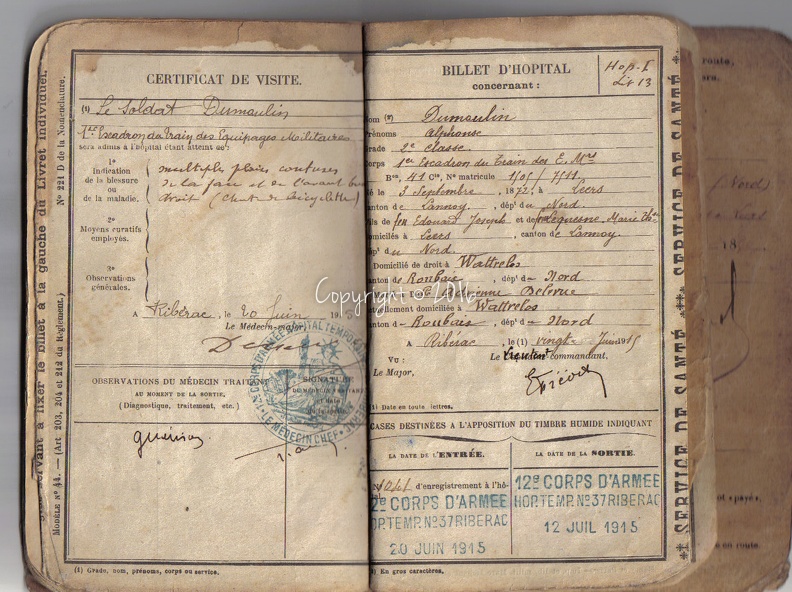 CERTIFICAT DE VISITE.
(1) Le Soldat Dumoulin
1er Escadron du Train des Equipages Militaires
sera admis à l'hôpital étant atteint de:
1°
Indication
de la blessure
ou
de la maladie.
multiples plaies contuses
de la face et de l'avant bras
droit (Chute de bicyclette)
2°
Moyens curatifs
employés.
3°
Observations
générales.
A Ribérac, le 20 Juin 19
Le Médecin-major,
OBSERVATIONS DU MÉDECIN TRAITANT
AU MOMENT DE LA SORTIE,
(Diagnostique, traitement, etc.)
SIGNATURE
DU MÉDECIN TRAITANT
et date
LE MÉDECIN CHEF
guérison
(1) Grade, nom, prénoms, corps ou service.
à la gauche du Livret individuel.
N° 221 D de la Nomenclature.
servant à fixer le billet
MODÈLE N° 44. — (Art 203, 204 et 212 du Règlement.)
BILLET D'HOPITAL
concernant :
Hop. I
Lit 13
Nom (2) Dumoulin
Prénoms Alphonse
Grade 2e classe.
Corps 1er Escadron du Train des E. Mres
Bon, 41 Cie, N° matricule 1/05/7511
né le 3 Septembre 1872, à Leers
canton de Lannoy, dépt du Nord
fils de feu Edouard Joseph et de Lequesne, Marie
domiciliés à Leers, canton de Lannoy.
dépt du Nord.
Domicilié de droit à Wattrelos
canton de Roubaix, dépt du Nord
Adrienne Delerue
domicilié à Wattrelos
canton de Roubaix, dépt du Nord
A Ribérac, le (1) vingt Juin 1915
Vu :
Le Major,
Le commandant,
(1) Date en toute lettres.
CASES DESTINÉES A L'APPOSITION DU TIMBRE HUMIDE INDIQUANT
LA DATE DE L'ENTRÉE.
LA DATE DE LA SORTIE.
d'enregistrement à l'hô-
2e CORPS D'ARMEE
HOP.TEMP. N°37 RIBERAC
20 JUIN 1915
12e CORPS D'ARMEE
HOP. TEMP. N°37 RIBERAC
12 JUIL 1915
(2) En gros caractères.
SERVICE DE SANTÉ
SERVICE DE SANTÉ
Copyright © 2016
route,
(Nord)
18
ot « payé ».
en route.